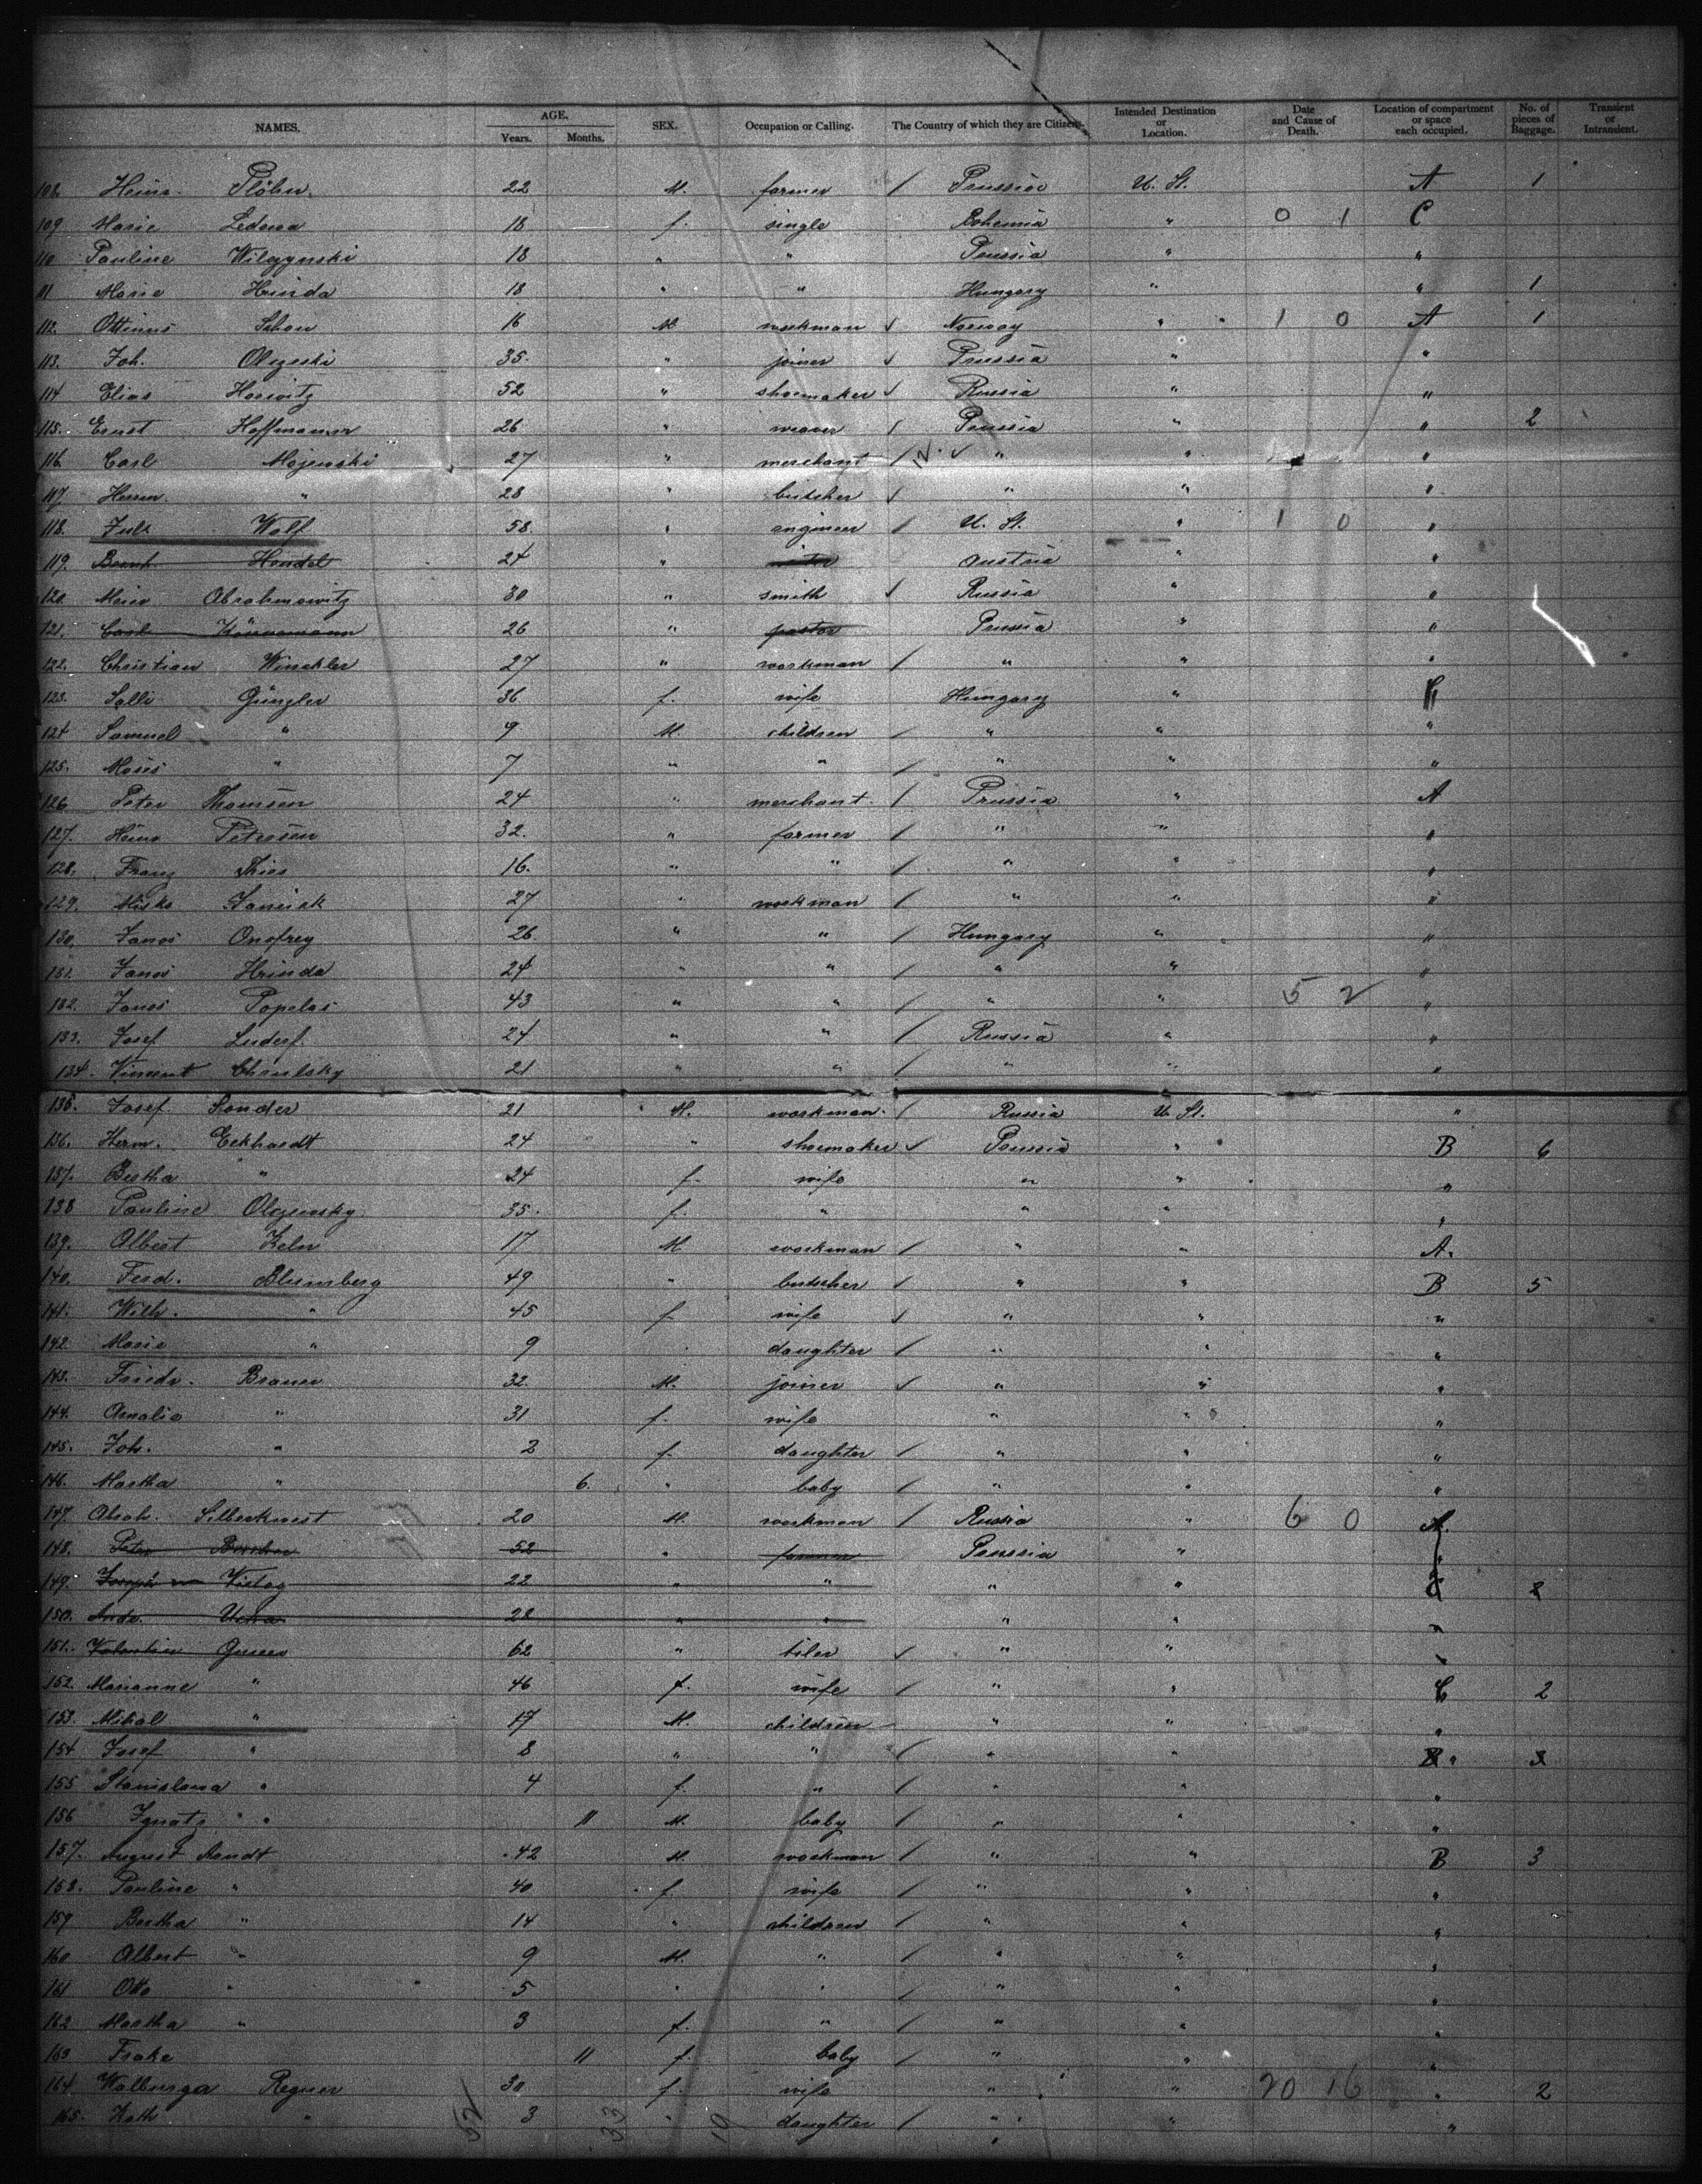 NAMES. AGE. Years. Months. SEX. Occupation or Calling. The Country of which they are Citizens. Intended Destination or Location. Date and Cause of Death. Location of compartment or space each occupied. No. of pieces of Baggage. Transient or Intransient.
108. Heinr. Plöhn 22 M. farmer / Prussia U. St. A 1
109 Marie 18 f. single Bohemia " 0 1 C
110 Pauline Wilczynski 18 " " Prussia " "
111 Marie Hrinda 18 " " Hungary " " 1
112. Schou 16 M. workman √ Norway " 1 0 A 1
113. Joh. Olczeski 35. " joiner √ Prussia " "
114 Elias Horwitz 52 " shoemaker √ Russia " "
115. Ernst Hoffmann 26 " weaver / Prussia " " 2
116. Carl Majewski 27 " merchant / √ " " "
117. Herm. " 28 " butcher √ " " "
118. Juls Wolf 58. " engineer / U. St. " 1 0 "
119. Bernh. Hendel 24 " Austria " "
120. Meier Abrahmowitz 30 " smith √ Russia " "
121. Carl 26 " pastor Prussia " "
122. Christian Winckler 27 " workman / " " "
123. Salli Günzler 36 f. wife Hungary " C
124 Samuel " 9 M. children / " " "
125. Moses " 7 " " / " " "
126 Peter Thomsen 24 " merchant. / Prussia " A
127. Heinr. Petersen 32. " farmer / " " "
128. Franz Thies 16. " " / " " "
129. Misko Janicsk 27 " workman / " " "
130. Janos Onofrey 26. " " / Hungary " "
131. Janos Hrinda 24 " " / " " "
132. Janos Popelas 43 " " / " " 5 2 "
133. Josef Luderf. 24 " " / Russia " "
134. Vincent 21 " " / " " "
135. Josef Sonder 21 M. workman. / Russia U. St. "
136. Herm. Eckhardt 24 " shoemaker √ Prussia " B 6
137. Bertha " 24 f. wife " " "
138 Pauline Olczewsky 35. f. " " " "
139. Albert Zeln 17 M. workman / " " A.
140. Ferd. Blumberg 49 " butcher / " " B 5
141. Wilh. " 45 f. wife √ " " "
142. Marie " 9 daughter / " " "
143. Friedr. Brauer 32. M. joiner √ " " "
144. Amalie " 31 f. wife " " "
145. Joh. " 2 f. daughter / " " "
146. Martha " 6. " baby / " " "
147. Abrah. 20 M. workman / Russia " 6 0 A.
148. Peter 52 " farmer Prussia " "
149. Joseph 22 " " " " 2
150. Andr. 28 " " " " "
151. Valentin 62 " tiler √ " "
152. Marianne " 46 f. wife / " " C 2
153. Mikal " 17 M. children " " "
154 Josef " 8 " " / " " B " 3
155 Stanislawa " 4 f. " / " " "
156 Ignatz " 11 M. baby / " " "
157. August Arndt 42 M. workman / " " B 3
158. Pauline " 40 f. wife / " " "
159 Bertha " 14 " children / " " "
160 Albert " 9 M. " / " " "
161 Otto " 5 " " / " " "
162 Martha " 3 f. " / " " "
163 11 f. baby / " " "
164 Walburga Regner 30 f. wife " " 20 16 " 2
165. Kath. " 3 " daughter / " " "
52 33 19